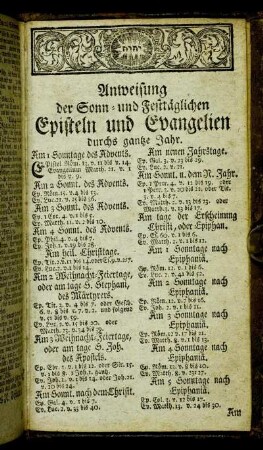 Anweisung
der Sonn- und Festtäglichen
Episteln und Evangelien
durchs gantze Jahr.
Am 1 Sonntage des Advents.
Epistel Röm. 13. v. 11 bis v. 14.
Evangelium Matth. 21. v. 1
bis v. 9.
Am 2 Sonnt. des Advents.
Ep. Röm. 15. v. 4 bis 13.
Ev. Luc. 21. v. 25 bis 36.
Am 3 Sonnt. des Advents.
Ep. 1 Cor. 4. v. 1 bis 5.
Ev. Matth. 11. v. 2 bis 10.
Am 4 Sonnt. des Advents.
Ep. Phil. 4. v. 4 bis 7.
Ev. Joh. 1. v. 19 bis 28.
Am heil. Christtage.
Ep. Tit. 2. v. 11 bis 14. oder Es.
Ev. Luc. 2. v. 1 bis 14.
Am 2 Weihnacht-Feiertage,
oder am tage S. Stephani,
des Märtyrers.
Ep. Tit. 3. v. 4 bis 7. oder Gesch.
6. v. 8 bis und folgend
v. 51 bis v. 59.
Ev. Luc. 2. v. 15 bis 20. oder
Matth. 23. v. 34 bis 39.
Am 3 Weihnacht-Feiertage,
oder am tage S. Joh.
des Apostels.
Ep. Ebr. 1. v. 1 bis 12. oder Sir. 15.
v. 1 bis 8.
Ev. Joh. 1. v. 1 bis 14. oder Joh. 21.
v. 20 bis 24.
Am Sonnt. nach dem Christt.
Ep. Gal. 4. v. 1 bis 7.
Ev. Luc. 2. v. 33 bis 40.
Am neuen Jahrstage.
Ep. Gal. 3. v. 23 bis 29.
Ev. Luc. 2. v. 21.
Am Sonnt. n. dem N. Jahr.
Ep. 1 Petr. 4. v. 12 bis 19. oder
1 Petr. 3. v. 20 bis 22. oder Tit.
3. v. 4 bis 7.
Ev. Matth. 2. v. 13 bis 23. oder
Matth. 3. v. 13 bis
Am tage der Erscheinung
Christi, oder Epiphan.
Ep. Es. 60. v. 1 bis 6.
Ev. Matth. 2. v. 1 bis 12.
Am 1 Sonntage nach
Epiphaniä.
Ep. Röm. 12. v. 1 bis 6.
Ev. Luc. 2. v. 41 bis 52.
Am 2 Sonntage nach
Epiphaniä.
Ep. Röm. 12. v. 7 bis 16.
Ev. Joh. 2. v. 1 bis 11.
Am 3 Sonntage nach
Epiphaniä.
Ep. Röm. 12. v. 17 bis 21.
Ev. Matth. 8. v. 1 bis 13.
Am 4 Sonntage nach
Epiphaniä.
Ep. Röm. 13. v. 8 bis 10.
Ev. Matth. 8. v. 23 bis 27.
Am 5 Sonntage nach
Epiphaniä.
Ep. Col. 3. v. 12 bis 17.
Ev. Matth. 13. v. 24 bis 30.
Am